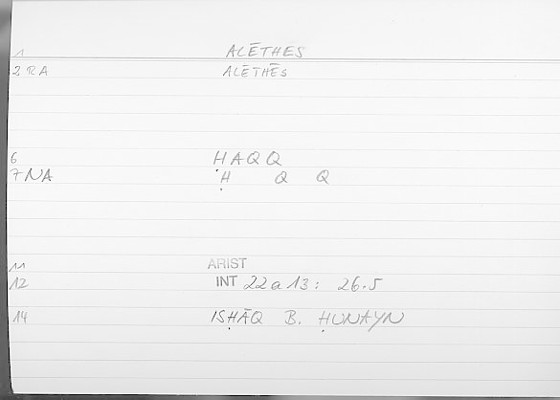 1 ALĒTHES
2 RA ALĒTHĒS
6 ḤAQQ
7 NA Ḥ Q Q
11 ARIST
12 INT 22a13: 26.5
14 ISḤĀQ B. ḤUNAYN